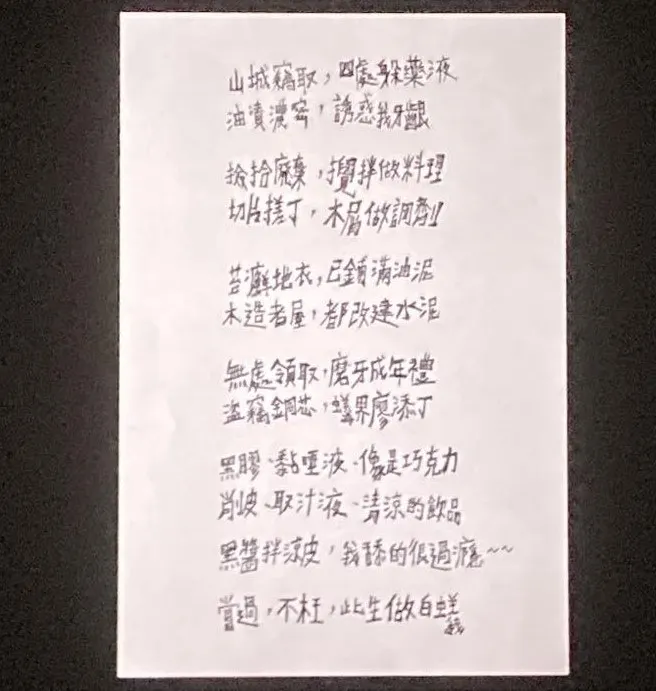 山城竊取，四處躲藥液
油漬濃密，誘惑我牙齦
撿拾廢棄，攪拌做料理
切片搓丁，木屑做調劑!!
苔蘚地衣，已鋪滿油泥
木造老屋，都改建水泥
無處領取，磨牙成年禮
盜竊鋼芯，蟻果廖添丁
黑膠、黏唾液、像是巧克力
削皮、取汁液、清涼的飲品
黑醬拌涼皮，我舔的很過癮~~
嘗過，不枉，此生做白蟻